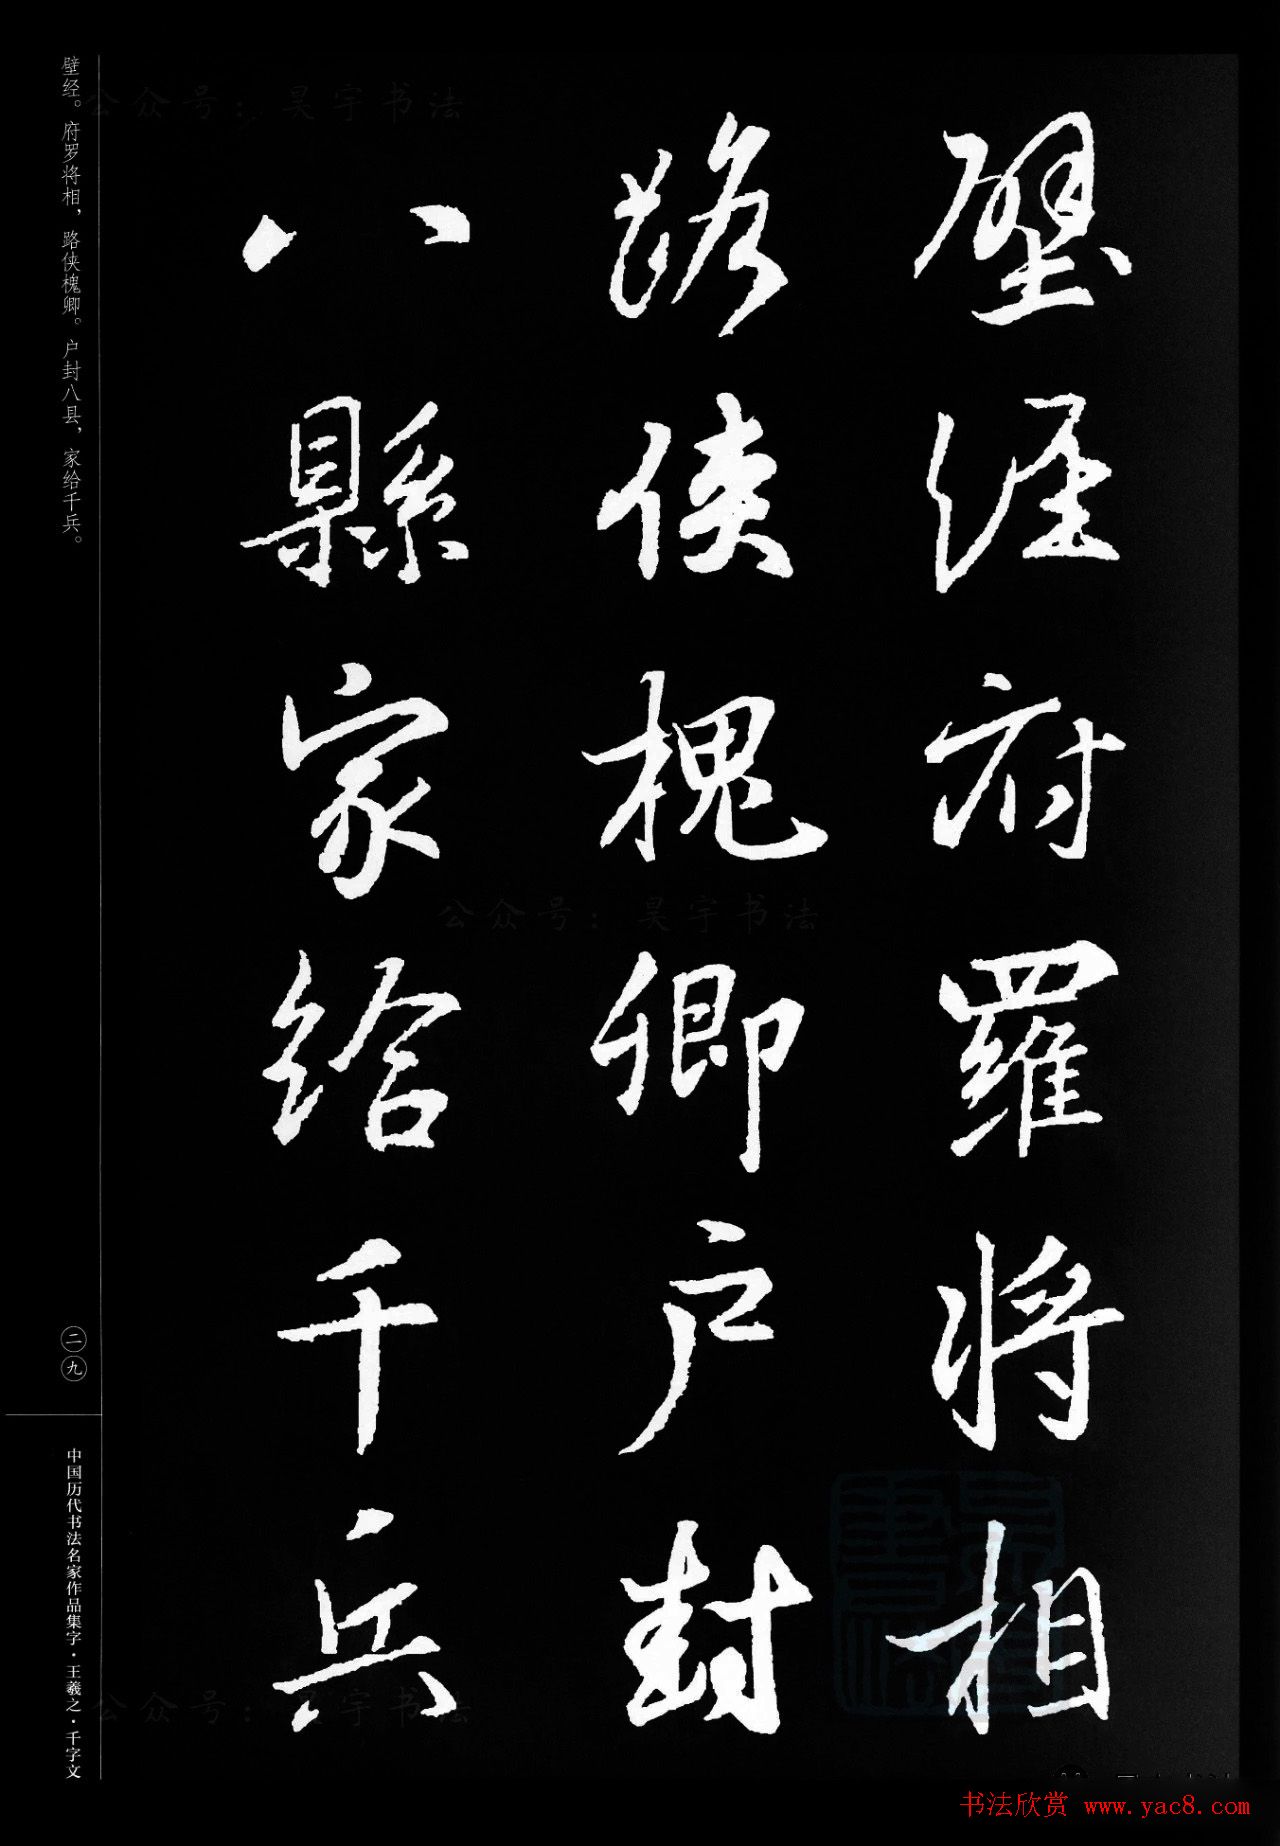 壁經府羅將相
路俠槐卿户封
八縣家給千兵
壁经。府罗将相，路侠槐卿。户封八县，家给千兵。
二九
中国历代书法名家作品集字·王羲之·千字文
公众号：昊宇书法
公众号：昊宇书法
公众号：昊宇书法
书法欣赏 www.yac8.com